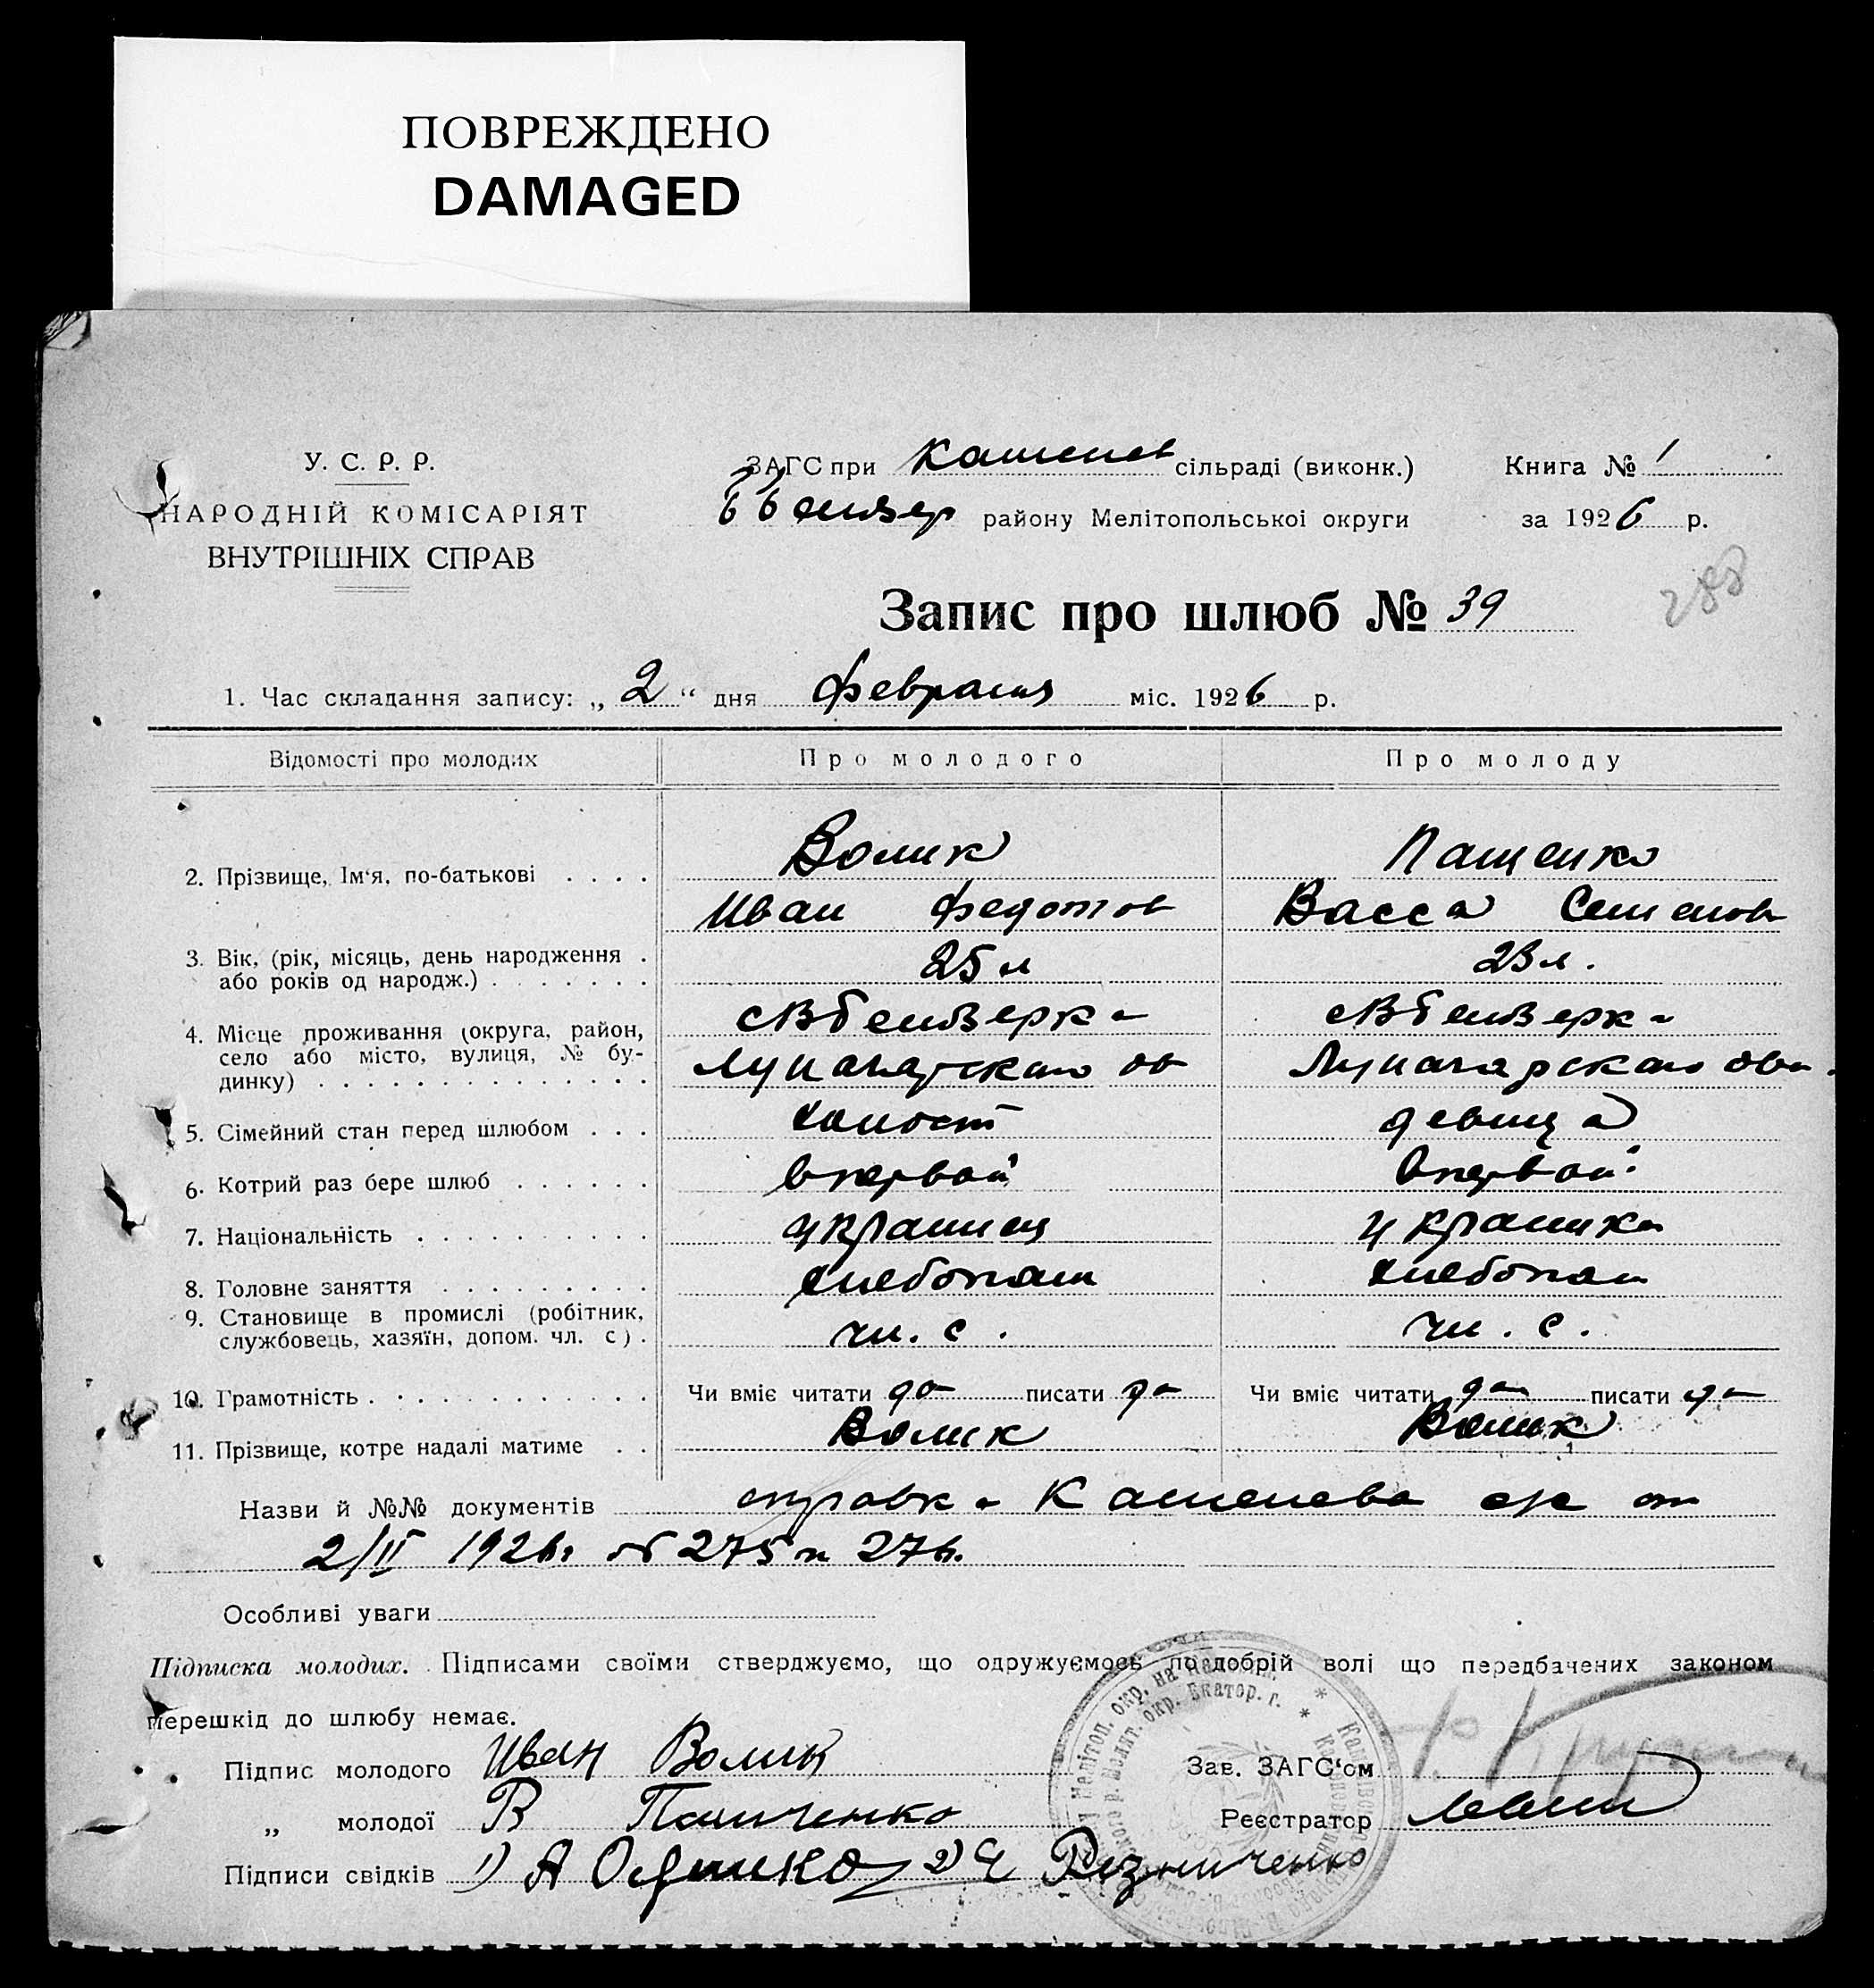 ПОВРЕЖДЕНО
DAMAGED
У. С. Р. Р.
НАРОДНІЙ КОМІСАРІЯТ
ВНУТРІШНІХ СПРАВ
ЗАГС при Каменев сільраді (виконк.)
району Мелітопольської округи
Книга № 1
за 1926 р.
Запис про шлюб № 39
288
1. Час складання запису: „ 2 “ дня февраля міс. 1926 р.
Відомості про молодих Про молодого Про молоду
2. Прізвище, Ім'я, по-батькові . . . . Волик Пащенко
Иван Федотов Васса Семенов
3. Вік, (рік, місяць, день народження . або років од народж.) . . . . . . . 25 л 23 л.
4. Місце проживання (округа, район, село або місто, вулиця, № будинку) . . . . . . . . . . . . . .
Луначарского Луначарского
5. Сімейний стан перед шлюбом . . . холост девица
6. Котрий раз бере шлюб . . . . . . впервой впервой
7. Національність . . . . . . . . . . украинец украинка
8. Головне заняття . . . . . . . . . хлебопаш хлебопаш
9. Становище в промислі (робітник, службовець, хазяїн, допом. чл. с) . чл. с. чл. с.
10. Грамотність . . . . . . . . . . . . Чи вміє читати да писати да Чи вміє читати да писати да
11. Прізвище, котре надалі матиме . . Волик Волик
Назви й №№ документів справка Каменева с/с от
2/II 1926г № 275 и 276.
Особливі уваги
Підписка молодих. Підписами своїми стверджуємо, що одружуємось по добрій волі що передбачених законом
перешкід до шлюбу немає.
Підпис молодого Иван Волик
Зав. ЗАГС'ом
„ молодої В Пащченко
Реєстратор
Підписи свідків 1) А 2) Е Резниченко